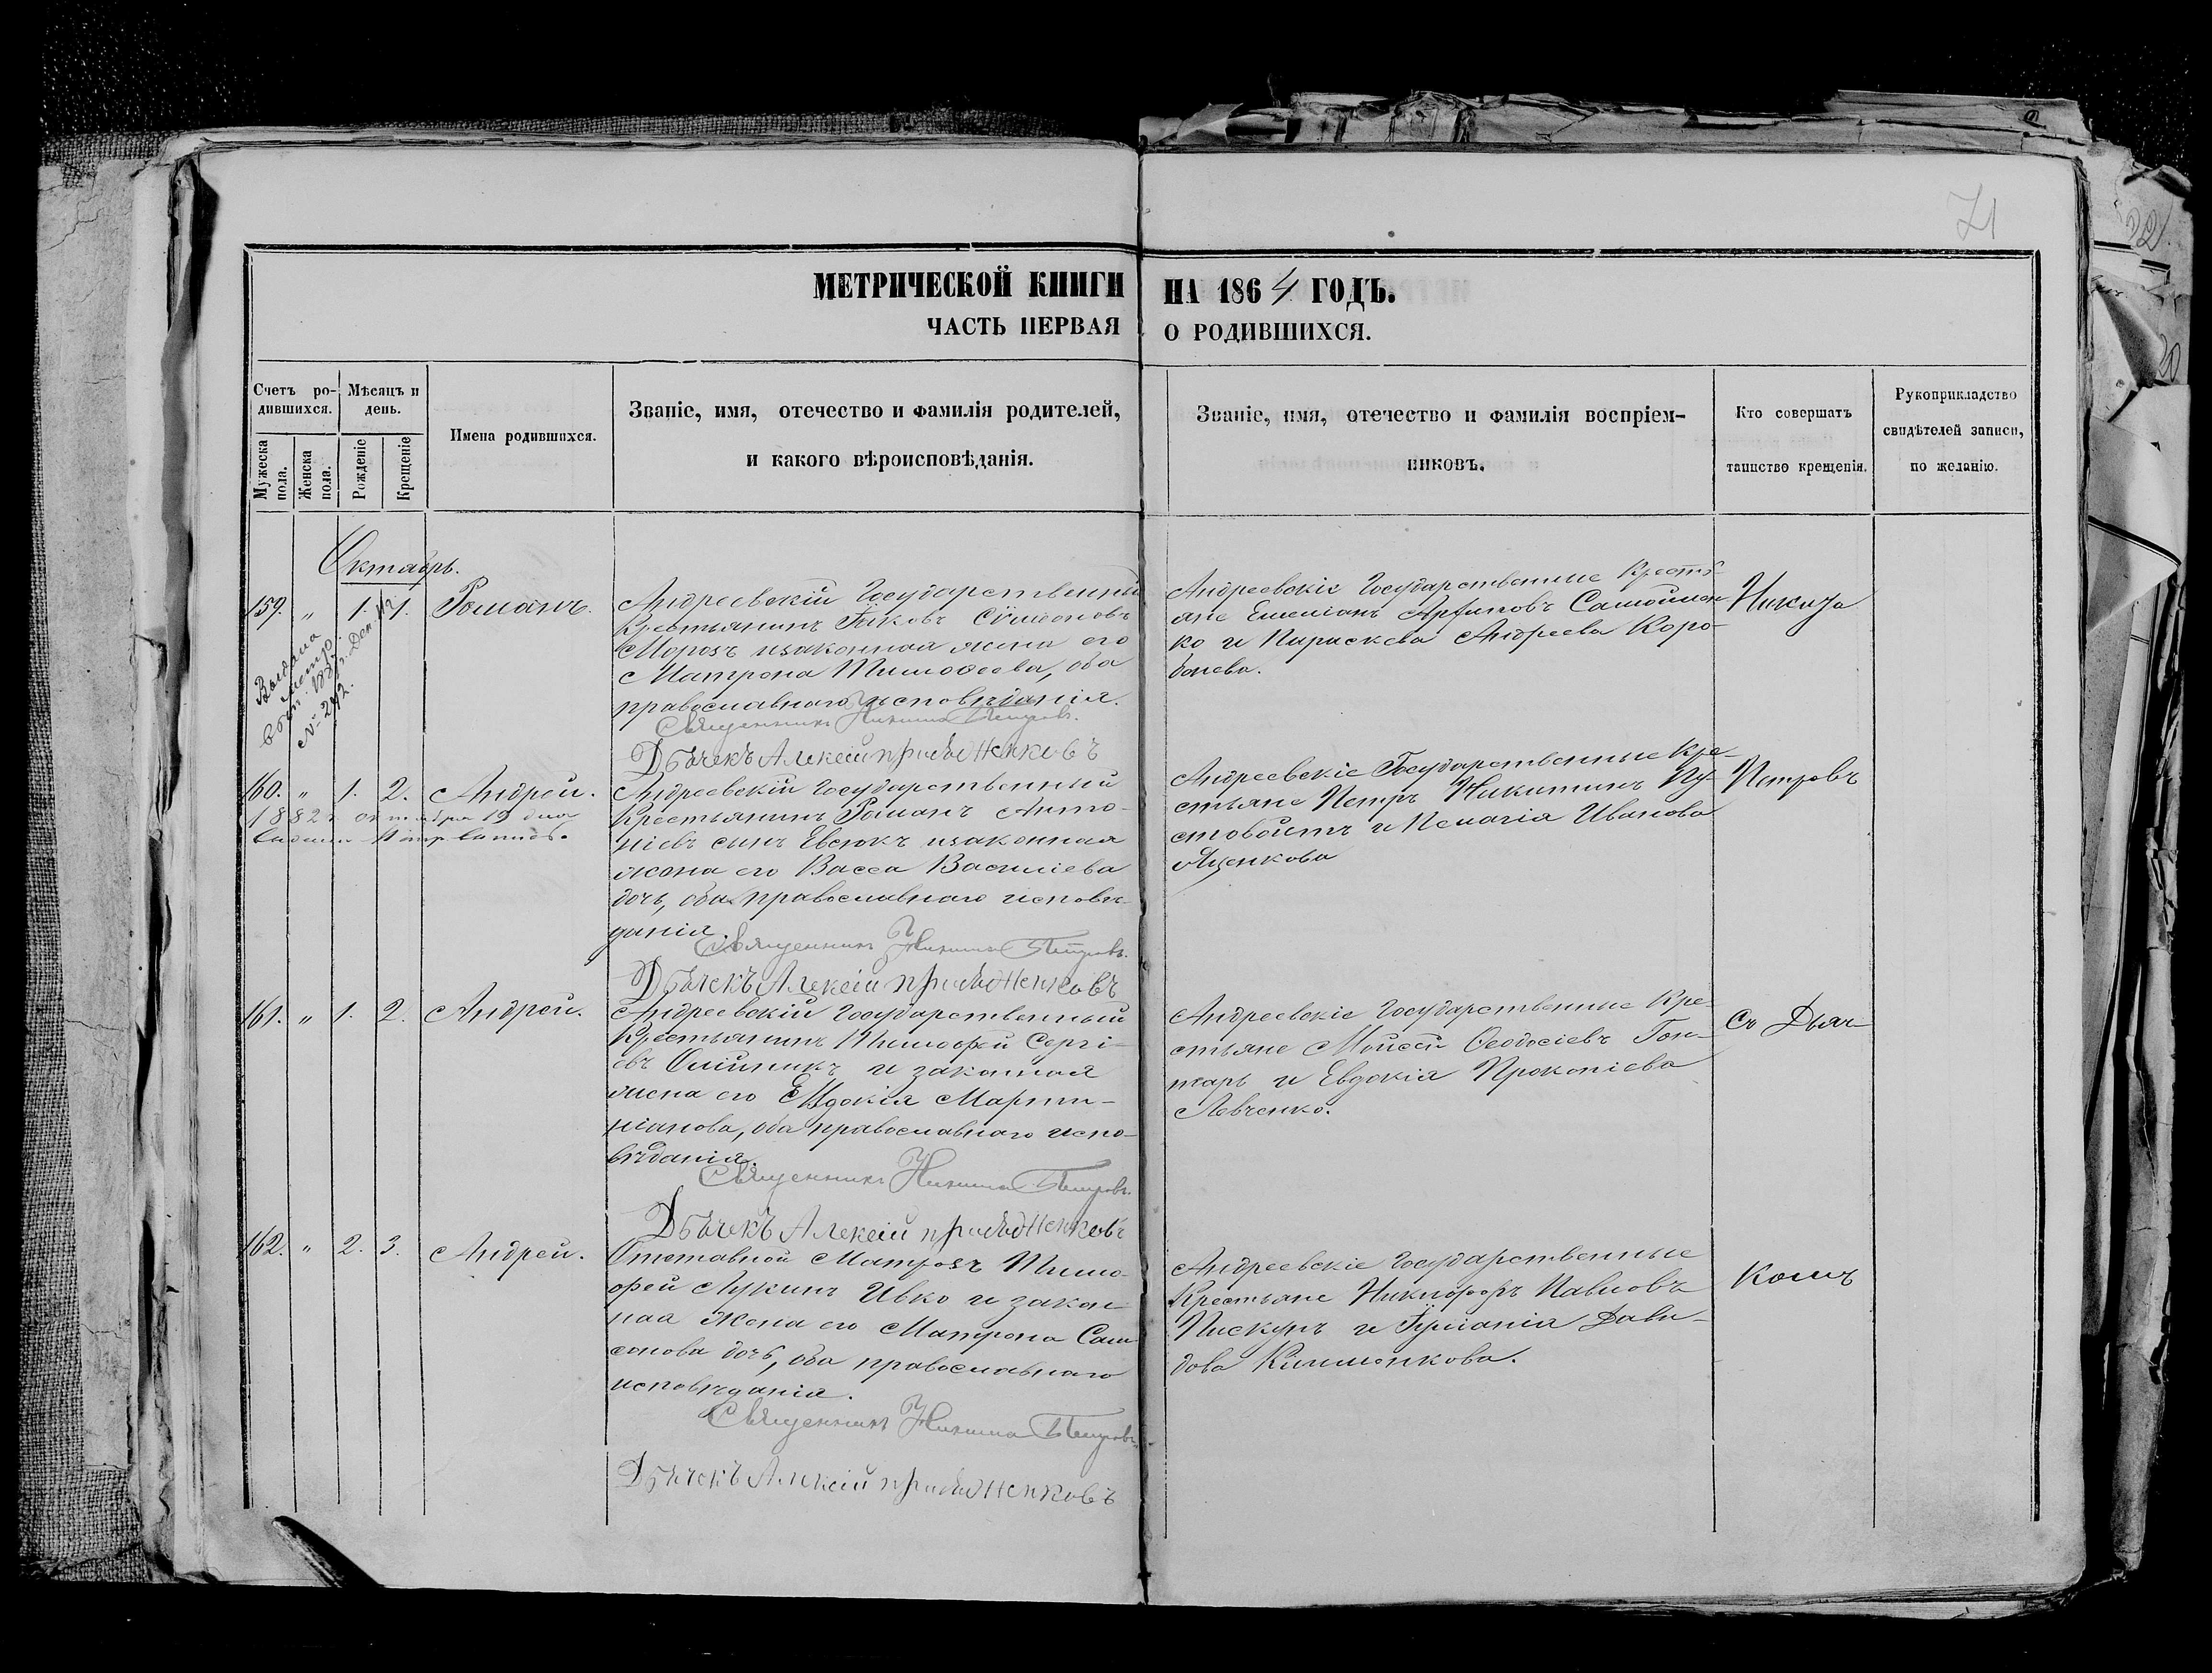 71
МЕТРИЧЕСКОЙ КНИГИ НА 1864 ГОДЪ.
ЧАСТЬ ПЕРВАЯ О РОДИВШИХСЯ.
Счетъ ро-
дившихся.
Мужеска пола.
Женска пола.
Мѣсяцъ и
день.
Рожденіе
Крещеніе
Имена родившихся.
Званіе, имя, отечество и фамилія родителей,
и какого вѣроисповѣданія.
Званіе, имя, отечество и фамилія воспріем-
никовъ.
Кто совершатъ
таинство крещенія.
Рукоприкладство
свидѣтелей записи,
по желанію.
Октябрь.
159. " 1. 1. Романъ.
Андреевскій Государственный
Крестьянинъ Яковъ Сѵмеоновъ
Морозъ изаконная жена его
Матрона Тимоѳеева, оба
православнаго исповѣданія.
Священникъ Никита Петровъ.
Дьячекъ Алексій
Андреевскіе Государственные Кресть-
яне Емеліанъ Архиповъ Самойлен-
ко и Параскева Андреева Коро-
баева.
Никита
Выдана
метр.
№ 292.
160. " 1. 2. Андрей.
1882 г. октября 19 дня
Андреевскій Государственный
Крестьянинъ Романъ Анто-
ніевъ сынъ Евсюкъ изаконная
жена его Васса Василіева
дочь, оба православнаго исповѣ-
данія.
Священникъ Никита Петровъ.
Дьячекъ Алексій
Андреевскіе Государственные Кре-
стьяне Петръ Никитинъ Пу-
стовойтъ и Пелагія Иванова
Яценкова
Петровъ
161. " 1. 2. Андрей.
Андреевскій Государственный
Крестьянинъ Тимофей Сергі-
евъ Олійникъ и законная
жена его Евдокія Марти-
ніанова, оба православнаго испо-
вѣданія.
Священникъ Никита Петровъ.
Дьячекъ Алексій
Андреевскіе Государственные Кре-
стьяне Моисей Ѳеодосіевъ Гон-
тарь и Евдокія Прокопіева
Левченко.
Съ Дьяч-
162. " 2. 3. Андрей.
Отставной Матрозъ Тимо-
фей Лукинъ Ивко и закон-
ная жена его Матрона Сам-
сонова дочь, оба православнаго
исповѣданія.
Священникъ Никита Петровъ.
Дьячекъ Алексій
Андреевскіе Государственные
Крестьяне Никифоръ Павловъ
Пискунъ и Іуліанія Дави-
дова Клименкова.
Комъ